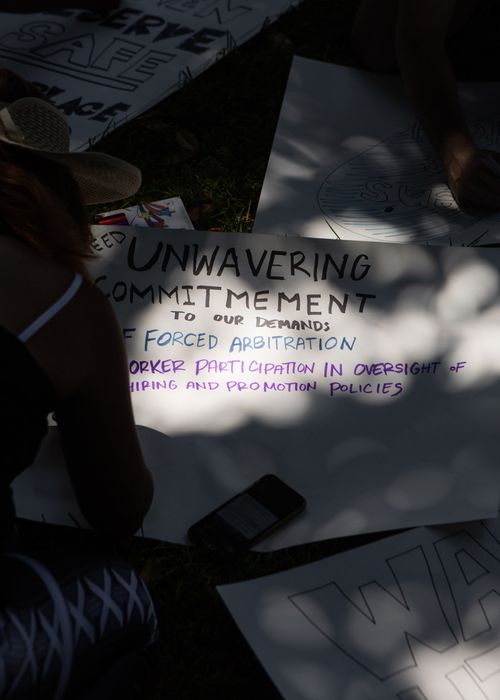 DESERVE
SAFE
PLACE
UNWAVERING
COMMITMEMENT
TO OUR DEMANDS
F FORCED ARBITRATION
ORKER PARTICIPATION IN OVERSIGHT OF
HIRING AND PROMOTION POLICIES
WA